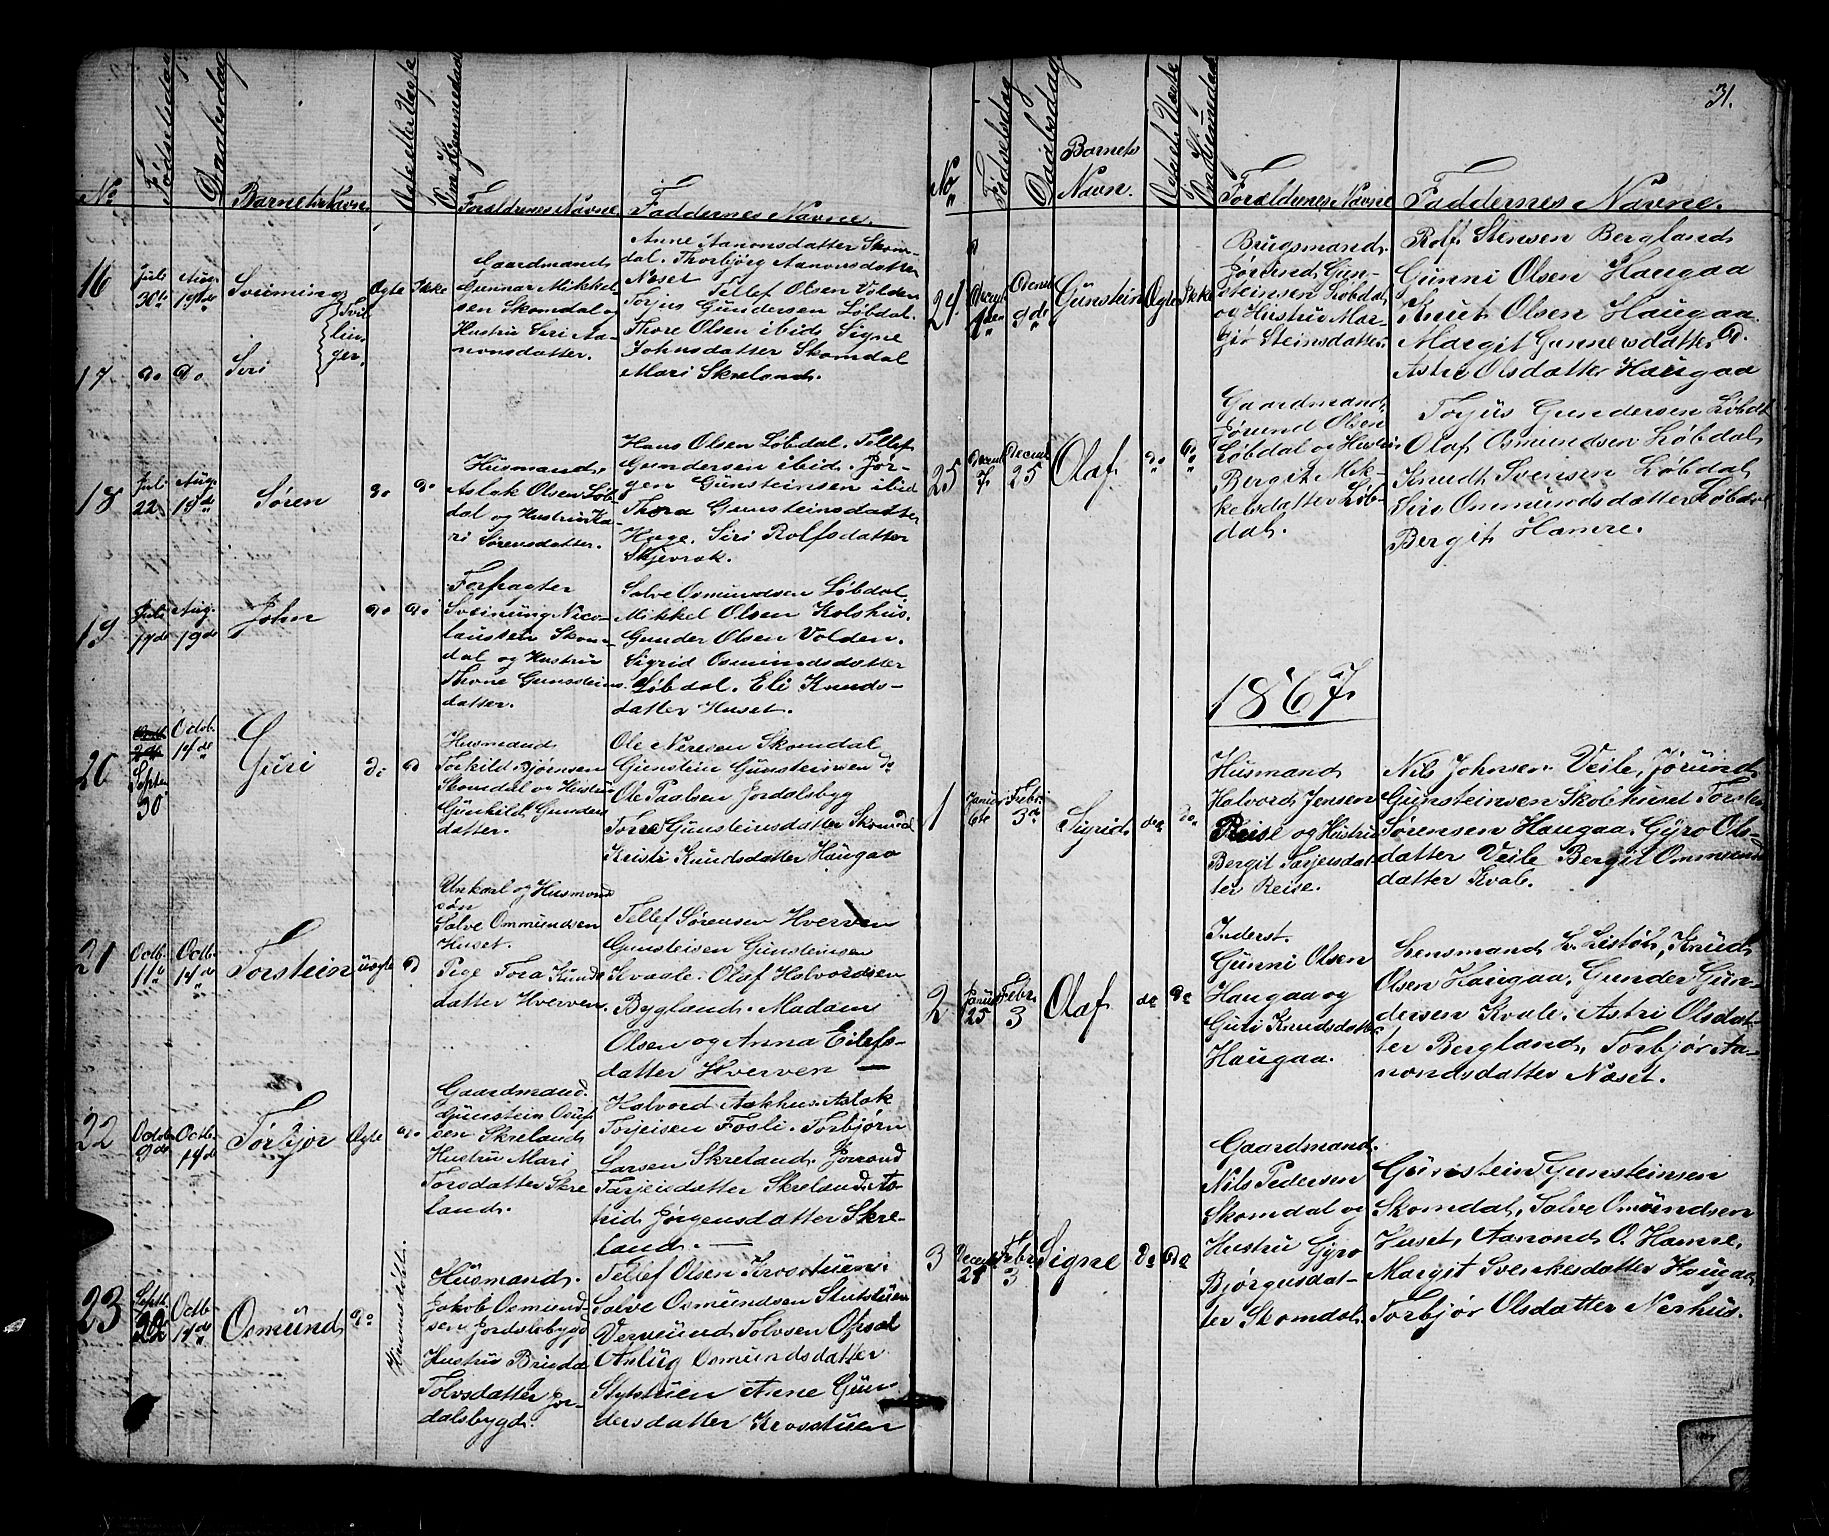 No
Fødselsdag
Daabsdag
Barnets Navn
Ægte eller Uægte
Om Hjemmedøbt
Forældrenes Navne
Faddernes Navne.
16
Juli
30te
Aug.
19de
Sveinung
Tvil-
lin-
ger
Ægte
Ikke
Gaardmand
Gunnar Mikkel-
sen Skomdal og
Hustru Siri Aa-
nonsdatter.
Anne Aanonsdatter Skom-
dal. Thorbjörg Aanonsdatter
Næset Tellef Olsen Volden
Torjus Gundersen Løbdal.
Thore Olsen ibid. Signe
Johnsdatter Skomdal
Mari Skreland.
17
do
Do
Siri
18
Juli
22
Aug.
19de
Søren
do
do
Husmand,
Aslak Olsen Løb-
dal og Hustru Ka-
ri Sørensdatter.
Hans Olsen Løbdal. Tellef
Gundersen ibid. Jør-
gen Gunsteinsen ibid
Thora Gunsteinsdatter
Hage. Siri Rolfsdatter
Skjevrak.
19
Juli
17de
Aug.
19de
John
do
do
Forpagter
Sveinung Nico-
laussen Skom-
dal og Hustru
Thone Gunsteins-
datter.
Salve Osmundsen Løbdal.
Mikkel Olsen Kolshus.
Gunder Olsen Volden.
Sigrid Osmundsdatter
Løbdal. Eli Knuds-
datter Huset.
20
Septe
30
Octob.
14de
Guri
do
D
Husmand
Torkild Bjørnsen
Skomdal og Hustru
Gunhild Gunders
datter.
Ole Neresen Skomdal
Gunstein Gunsteinsen do
Ole Paalsen Jordalsbyg
Torne Gunsteinsdatter Skomdal
Kristi Knudsdatter Haugaa
21
Octb.
11te
Octb.
14de
Torstein
uægte
D
Unkarl og Husmand
søn
Salve Ommundsen
Huset.
Pige Tora Knuds
datter Hverven.
Tellef Sørensen Hverven
Gunsteisen Gunsteinsen
Kvaale. Olaf Halvordsen
Bygland. Madam
Olsen og Anna Eilefs-
datter Hverven
22
Octob.
9de
Octb.
14de
Torbjør
Ægte
do
Gaardmand.
Gunstein Osuf-
sen Skreland
Hustru Mari
Torsdatter Skre
land.
Halvord Aakhus. Aslak
Torjeisen Fosli. Torbjørn
Larsen Skreland. Jorond
Tarjeisdatter Skreland. As-
trid Jørgensdatter Skre-
land.
23
Septb.
22
Octb.
14de
Osmund
do
Hjemmedøbt.
Husmand.
Jakob Osmund
sen Jordalsbygd
Hustru
Tolvsdatter Jor-
dalsbygd.
Tellef Olsen Krosstuen.
Salve Osmundsen Stutstuen
Vermund Tolvsen Opsal
Anlug Osmundsdatter
Stytstuen Anne Gun-
dersdatter Krosstuen
31.
No
Fødselsdag
Daabsdag
Barnets
Navn.
Hjemmedøbt
Forældrenes Navne
Faddernes Navne.
24
9de
Gunstein
Ægte
Ikke
Brugsmand.
Jørund Gun-
steinsen Løbdal,
og Hustru Mar-
gjø Steinsdatter.
Rolf Stensen Bergland
Gunni Olsen Haugaa
Knut Olsen Haugaa.
Margit Gunnersdatter D.
Astri Olsdatter Haugaa
25
Decmb
7
Decmb
25
Olaf
do
Do
Gaardmand,
Jørund Olsen
Løbdal og Hustru
Bergit Mik-
kelsdatter Løb-
dal.
Torjus Gundersen Løbdl
Olaf Osmundsen Løbdal,
Knudt Svensen Løbdal
Siri Ommundsdatter Løbdal
Bergit Hamre.
1867
1
Januar
6te
Febr.
3de
Sigrid
do
do
Husmand
Halvord Jensen
Reise og Hustru
Bergit Tarjeisdat-
ter Reise.
Nils Johnsen Veile, Jørund
Gunsteinsen Skolehuset Torsten
Sørensen Haugaa. Gyro Ols-
datter Veile Bergit Ommunds
datter Kvale.
2
Januar
25
Febr.
3
Olaf
do
Do
Inderst.
Gunni Olsen
Haugaa og
Guri Knudsdatter
Haugaa.
Lensmand L. Listøl, Knud
Olsen Haugaa, Gunder Gun-
dersen Kvale. Astri Olsdat-
ter Bergland, Torbjør Aa-
nondsdatter Næset.
3
Decmb
Febr.
3
Signe
do
Do
Gaardmand.
Nils Pedersen
Skomdal og
Hustru Gyro
Bjørgusdat-
ter Skomdal.
Gunstein Gunsteinsen
Skomdal, Salve Omundsen
Huset, Aanond O. Hamre,
Margit Svenkesdatter Haugaa
Torbjør Olsdatter Nerhus.